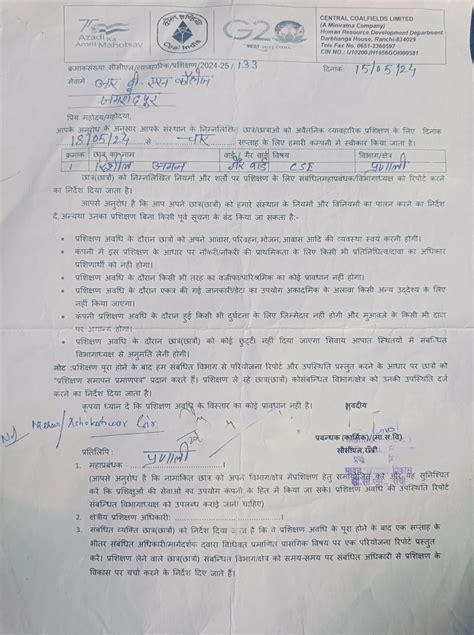 75
Azadi Ka
Amrit Mahotsav
Coal India
G20
CENTRAL COALFIELDS LIMITED
(A Miniratna Company)
Human Resource Development Department
Darbhanga House, Ranchi-834029
Tele Fax No. 0651-2360597
CIN NO.: U10200JH1956GOI000581
क्रमाकसंख्या सीसीएल/व्यावहारिक/प्रशिक्षण/2024-25/ 133
दिनांक: 15/05/24
सेवामे
आर वी एस कॉलेज
जमशेदपुर
प्रिय महोदय/महोदया,
आपके अनुरोध के अनुसार आपके संस्थान के निम्नलिखित छात्र/छात्राओं को अवैतनिक व्यावहारिक प्रशिक्षण के लिए दिनांक
18/05/24 से चार सप्ताह के लिए हमारी कम्पनी में स्वीकार किया जाता है।
क्रमाक छात्र का नाम वार्ड/ गैर वार्ड विषय विभाग/क्षेत्र
1 अमन गैर वार्ड CSE प्रणाली
छात्र(छात्रा) को निम्नलिखित नियमों और शर्तों पर प्रशिक्षण के लिए संबंधितमहाप्रबंधक/विभागाध्यक्ष को रिपोर्ट करने
का निर्देश दिया जाता है।
आपसे अनुरोध है कि आप अपने छात्र(छात्रा) को हमारे संस्थान के नियमों और विनियमों का पालन करने का निर्देश
दे,अन्यथा उनका प्रशिक्षण बिना किसी पूर्व सूचना के बंद किया जा सकता है:-
• प्रशिक्षण अवधि के दौरान छात्रों को अपने आवास,परिवहन,भोजन,आवास आदि की व्यवस्था स्वयं करनी होगी।
• कंपनी में इस प्रशिक्षण के आधार पर नौकरी/नौकरी की प्राथमिकता के लिए किसी भी प्रतिनिधित्व/दावा का अधिकार
प्रशिणार्थी को नही होगा।
• प्रशिक्षण अवधि के दौरान किसी भी तरह का वजीफा/पारिश्रमिक का कोई प्रावधान नहीं होगा।
• प्रशिक्षण अवधि के दौरान एकत्र की गई जानकारी/डेटा का उपयोग अकादमिक के अलावा किसी अन्य उद्देश्य के लिए
नहीं किया जाएगा।
• कंपनी प्रशिक्षण अवधि के दौरान हुई किसी भी दुर्घटना के लिए जिम्मेदार नहीं होगी और मुआवजे के किसी भी दावा
पर
• प्रशिक्षण अवधि के दौरान छात्र(छात्रा) को कोई छुट्टी नहीं दी जाएगा सिवाय आपात स्थितियों में संबन्धित
विभागाध्यक्ष से अनुमति लेनी होगी।
नोट :प्रशिक्षण पूरा होने के बाद हम संबंधित विभाग से परियोजना रिपोर्ट और उपस्थिति प्रस्तुत करने के आधार पर छात्रों को
"प्रशिक्षण समापन प्रमाणपत्र" प्रदान करते हैं। प्रशिक्षण ले रहे छात्र(छात्रा) कोसंबन्धित विभाग/क्षेत्र को उनकी उपस्थिति दर्ज
करने का निर्देश दिया जाता है।
कृपया ध्यान दे कि प्रशिक्षण अवधि के विस्तार का कोई प्रावधान नहीं है।
भवदीय
प्रबन्धक (कार्मिक)/(मा.स.वि)
सीसीएल,राँची
प्रतिलिपि :
प्रणाली
1. महाप्रबंधक
(आपसे अनुरोध है कि नामांकित छात्र को अपने विभाग/क्षेत्र मेंप्रशिक्षण हेतु समायोजित करे और यह सुनिश्चित
करे कि प्रशिक्षुओं की सेवाओं का उपयोग कंपनी के हित में किया जा सके। प्रशिक्षण अवधि की उपस्थिति रिपोर्ट
संबन्धित विभागाध्यक्ष को उपलब्ध कराई जानी चाहिए)
2. क्षेत्रीय प्रशिक्षण अधिकारी:
3. संबंधित व्यक्ति छात्र(छात्रा) को निर्देश दिया जाता है कि वे प्रशिक्षण अवधि के पूरा होने के बाद एक सप्ताह के
भीतर संबंधित अधिकारी/मार्गदर्शक द्वारा विधिवत प्रमाणित प्रासंगिक विषय पर एक परियोजना रिपोर्ट प्रस्तुत
करें। प्रशिक्षण लेने वाले छात्र(छात्रा) संबन्धित विभाग/क्षेत्र को समय-समय पर संबंधित अधिकारी से प्रशिक्षण के
विकास पर चर्चा करने के निर्देश दिए जाते हैं।